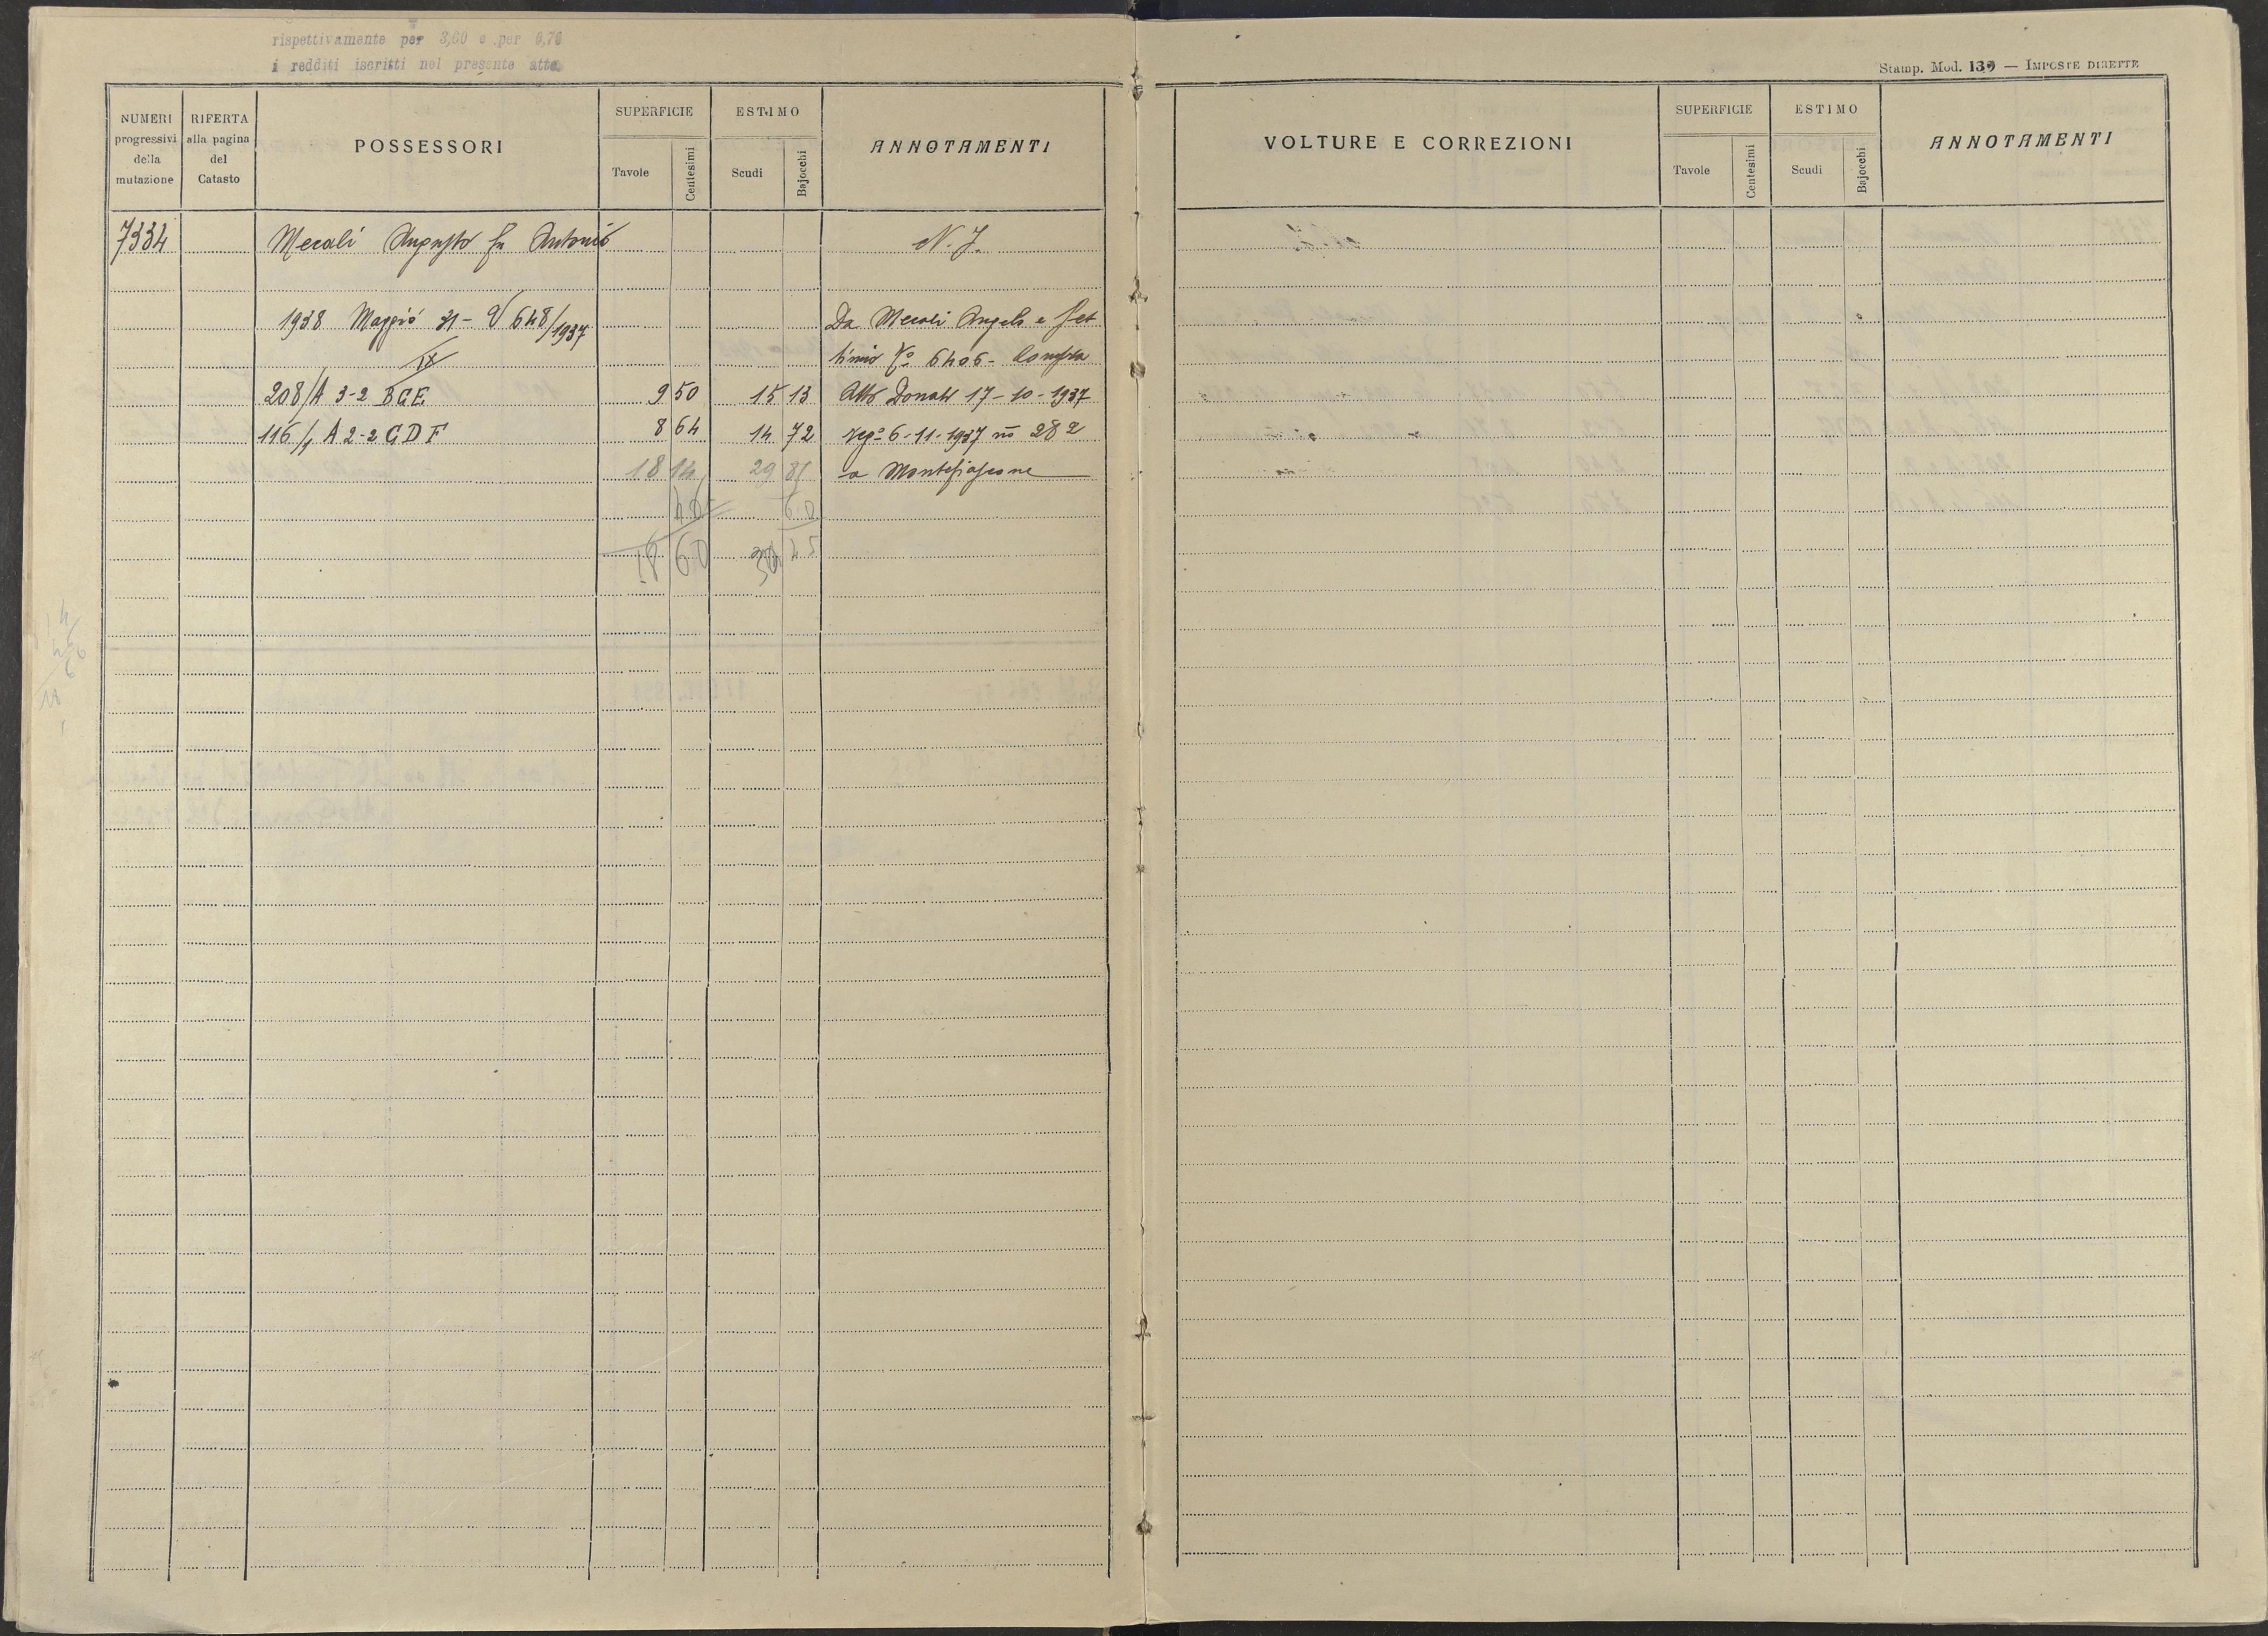 rispettivamente per 3,60 e per 0,70
i redditi iscritti nel presente atto
NUMERI progressivi della mutazione
RIFERTA alla pagina del Catasto
POSSESSORI
SUPERFICIE
Tavole
Centesimi
ESTIMO
Scudi
Bajocchi
ANNOTAMENTI
7334 Mecali Augusto fu Antonio N. I.
1938 Maggio 31 - V 648/1937 Da Mecali Angelo e Set
IX timio N° 6406 - Compra
208/A 3-2 BCE 9 50 15 13 Atto Donati 17-10-1937
116/1 A 2-2 C D F 8 64 14 72 Reg° 6-11-1937 n° 282
18 14 29 85 a Montefiascone
46 60
18 60 30 25
Stamp. Mod. 139 — IMPOSTE DIRETTE
VOLTURE E CORREZIONI
SUPERFICIE
Tavole
Centesimi
ESTIMO
Scudi
Bajocchi
ANNOTAMENTI